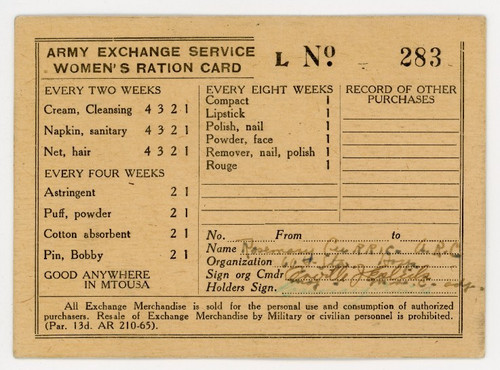 ARMY EXCHANGE SERVICE
WOMEN'S RATION CARD
L Nº - 283
EVERY TWO WEEKS
Cream, Cleansing 4 3 2 1
Napkin, sanitary 4 3 2 1
Net, hair 4 3 2 1
EVERY FOUR WEEKS
Astringent 2 1
Puff, powder 2 1
Cotton absorbent 2 1
Pin, Bobby 2 1
GOOD ANYWHERE
IN MTOUSA
EVERY EIGHT WEEKS
Compact 1
Lipstick 1
Polish, nail 1
Powder, face 1
Remover, nail, polish 1
Rouge 1
RECORD OF OTHER
PURCHASES
No. From to
Name Rosemary
Organization
Sign org Cmdr
Holders Sign.
All Exchange Merchandise is sold for the personal use and consumption of authorized
purchasers. Resale of Exchange Merchandise by Military or civilian personnel is prohibited.
(Par. 13d. AR 210-65).